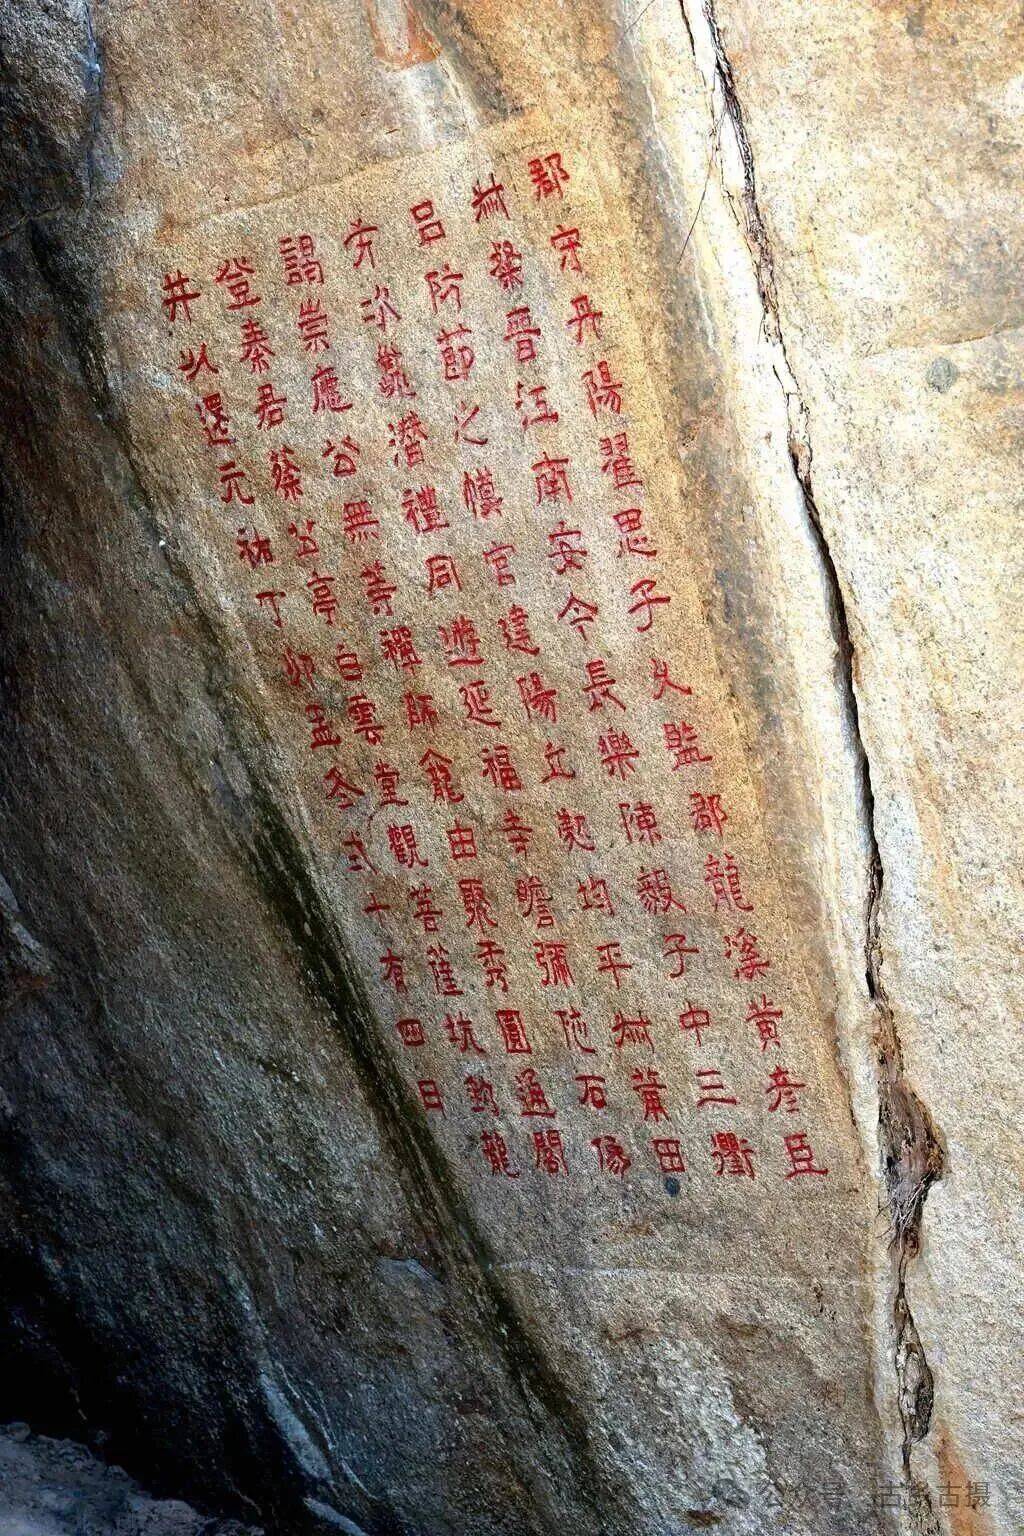 郡守丹陽翟思子久監郡龍溪黃彥臣
叔粲晉江南安令長樂陳毅子中三衢
呂防節之幙官建陽丘均平叔莆田
方次夔潛禮同遊延福寺瞻彌陀石像
謁崇應公無等禪師龕由聚秀圓通閣
登秦君蔡亭白雲堂觀菩薩坑到龍
井以還元祐丁卯孟冬弍十有四日
公众号